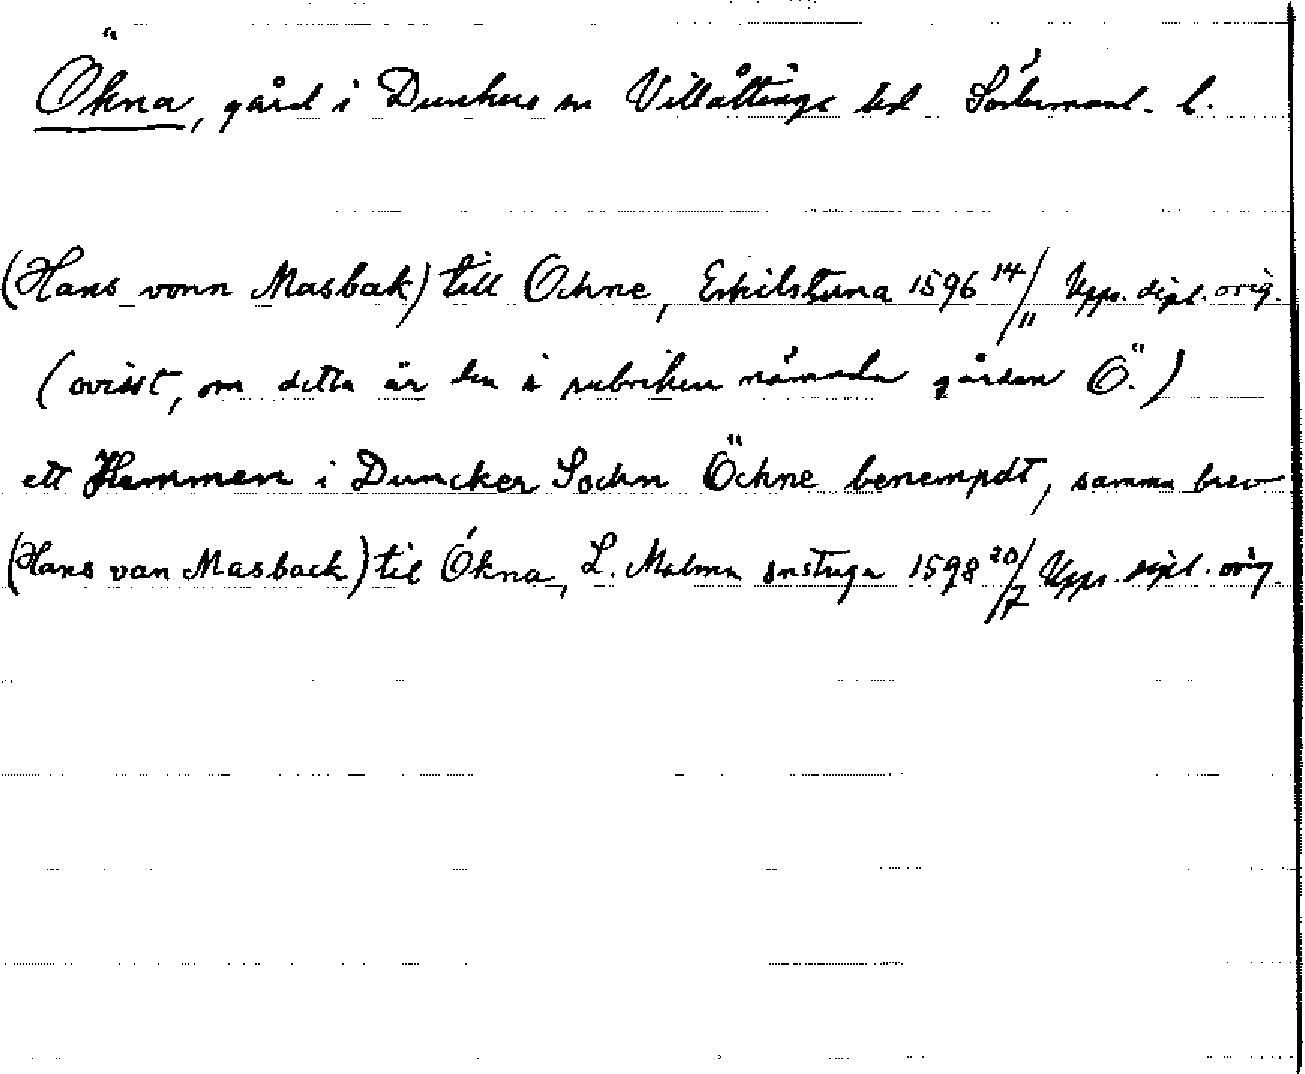 Ökna, gård i Dunkers sn Villåttinge hd Södermanl. l.
(Hans vonn Masbak) till Ochne, Eskilstuna 1596 14/11 Upps. dipl. orig.
(ovisst, om detta är den i rubriken nämnda gården Ö.)
ett Hemmen i Duncker Sochn Öchne benempdt, samma brev
(Hans van Masback) til Ókna, L. Malma snstuga 1598 20/7 Upps. dipl. orig.